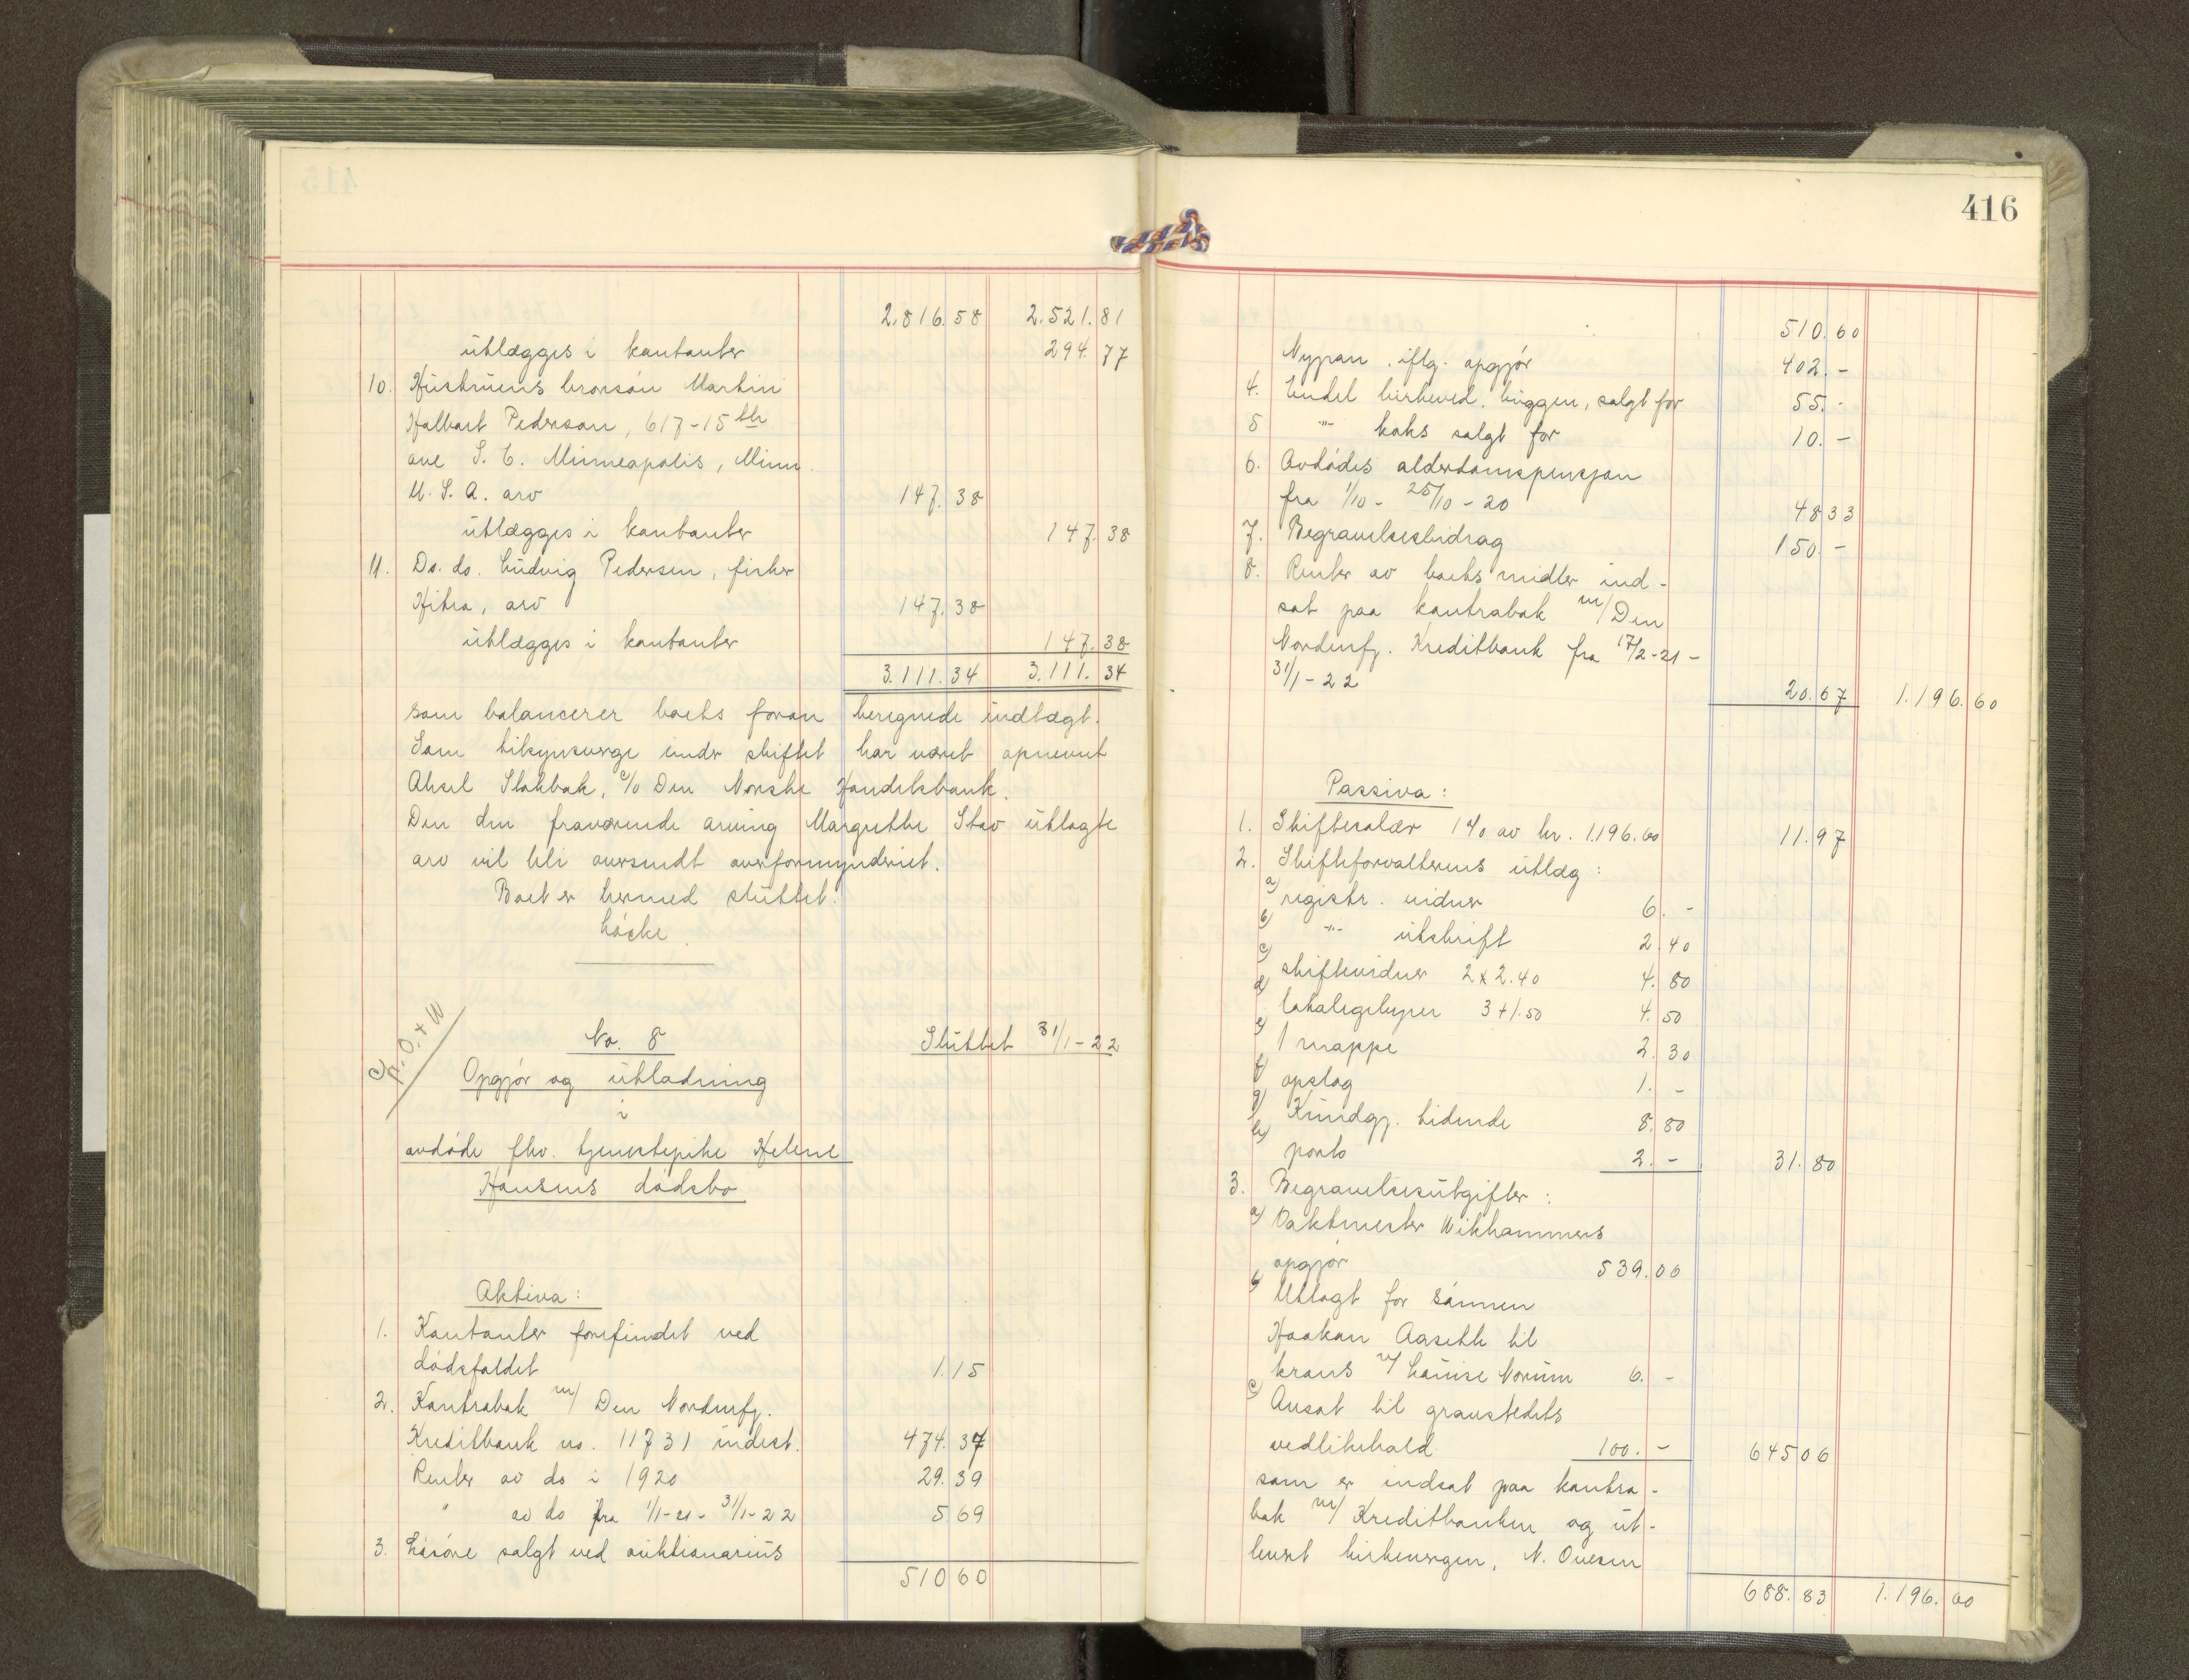 2.816.58 2.521.81
utlægges i kontanter 294.77
10. Hustruens brorsøn Martin
Halbart Pederson, 617-15 the
ave S. E. Minneapolis, Minn.
U. S. A. arv 147.38
utlægges i kontanter 147.38
11. Do. do. Ludvig Pedersen, fisker
Hitra, arv 147.38
utlægges i kontanter 147.38
3.111.34 3.111.34
som balancerer boets foran beregnede indtægt.
Som tilsynsverge under skiftet har været opnevnt
Aksel Stokbak, c/o Den Norske Handelsbank.
Den den fraværende arving Margrethe Stav utlagte
arv vil bli oversendt overformynderiet.
Boet er hermed sluttet.
Løcke
No. 8 Sluttet 31/1-22
Opgjør og utlodning
i
avdøde fhv. tjenestepike Helene
Hansens dødsbo
Aktiva:
1. Kontanter forefundet ved
dødsfaldet 1.15
2. Kontrabok m/ Den Nordenfj.
Kreditbank no. 11731 indest. 474.37
Renter av do i 1920 29.39
" av do fra 1/1-21 - 31/1-22 5.69
3. Løsøre solgt ved auktionarius
510.60
416
510.60
Nypan iflg. opgjør 402.-
4. Endel birkeved, huggen, solgt for 55.-
5 -"- koks solgt for 10.-
6. Avdødes alderdomspensjon
fra 1/10 - 25/10 - 20 48.33
7. Begravelsesbidrag 150.-
8. Renter av boets midler ind-
sat paa kontrabok m/ Den
Nordenfj. Kreditbank fra 17/2-21 -
31/1-22 20.67 1.196.60
Passiva:
1. Skiftesalær 1% av kr. 1.196.60 11.97
2. Skifteforvalterens utlæg:
a) registr. vidner 6.-
b) -"- utskrift 2.40
c) skiftevidner 2 x 2.40 4.80
d) lokalegebyrer 3 + 1.50 4.50
e) 1 mappe 2.30
f) opslag 1.-
g) Kundgj. tidende 8.80
h) porto 2.- 31.80
3. Begravelsesutgifter:
a) Vaktmester Wikhammers
opgjør 539.06
b) Utlagt for sønnen
Haakon Aaseth til
krans v/ Louise Norum 6.-
c) Ansat til gravstedets
vedlikehold 100.- 645.06
som er indsat paa kontra-
bok m/ Kreditbanken og ut-
levert kirkevergen, N. Ouesen
688.83 1.196.60